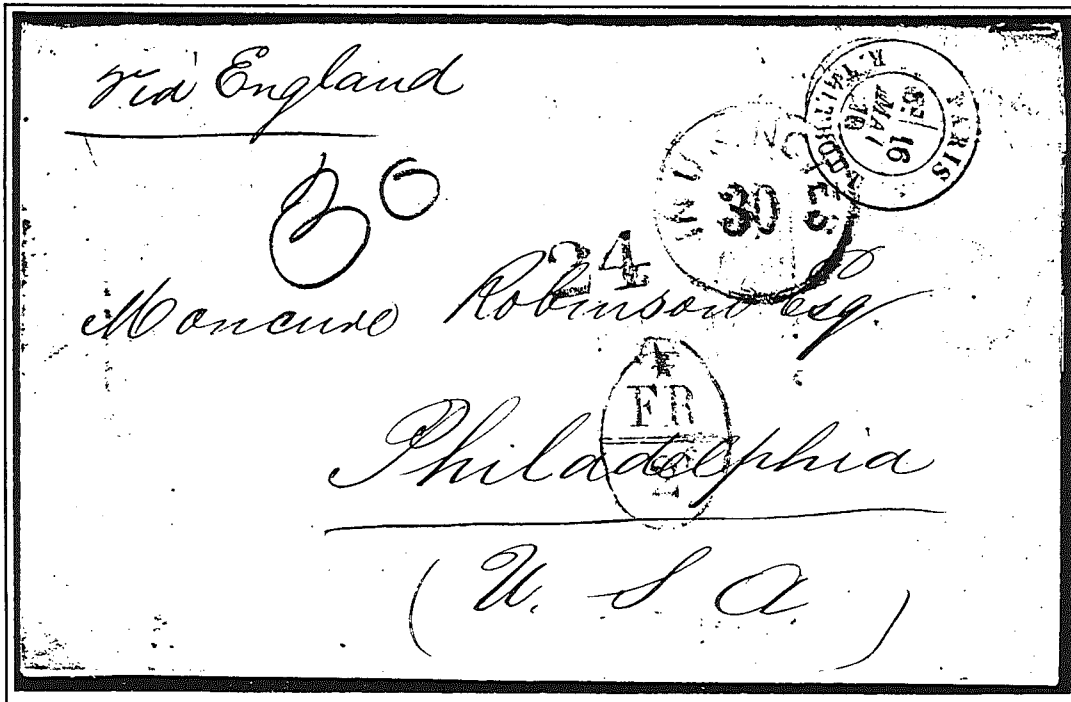 via England
PARIS
16
MAI
30
30
24
Moncure Robinson Esq.
FR
Philadelphia
(U. S. A.)